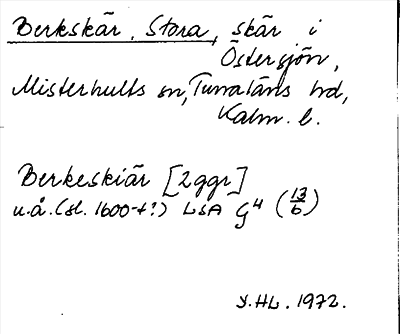 Berkskär, Stora, skär i
Östersjön,
Misterhults sn, Tunaläns hd,
Kalm. l.
Berkeskiär [2 ggr]
u.å. (sl. 1600-t?) LSA G4 (13/6)
Y.HL. 1972.